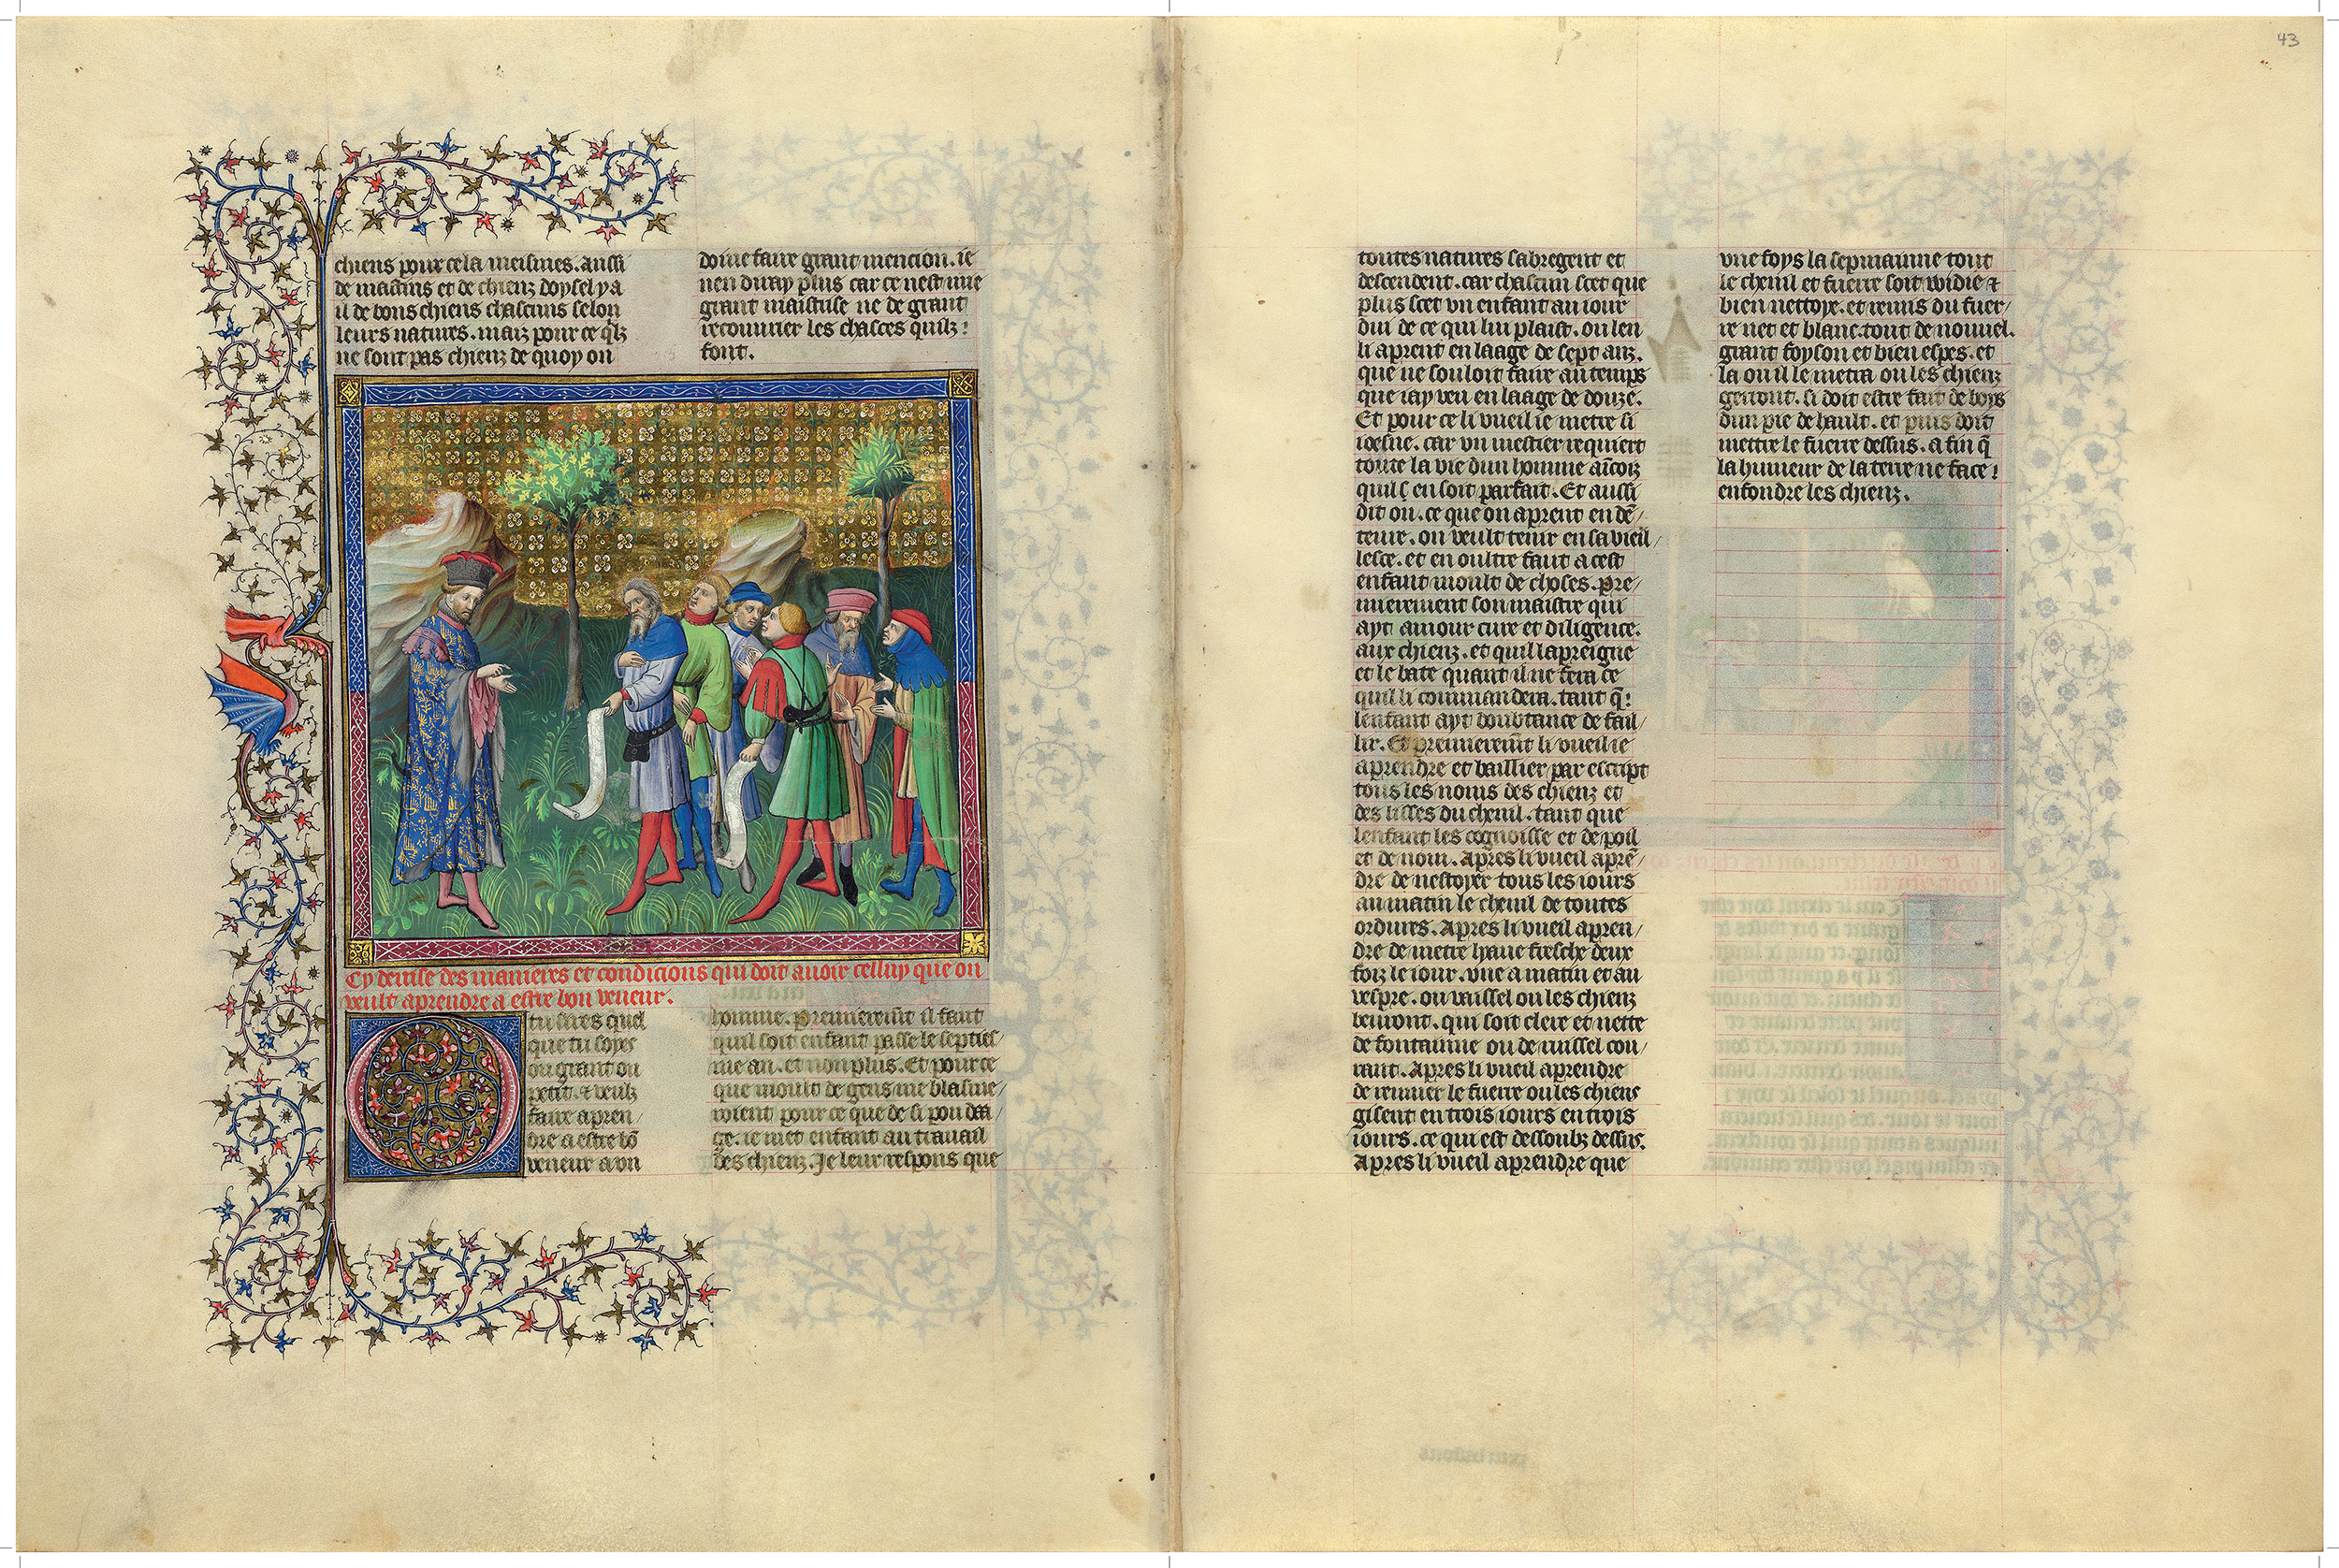 chiens pour cela meismes. aussi
de mastins et de chienz doysel y a
il de bons chiens chascuns selon
leurs natures. maiz pour ce qlz
ne sont pas chienz de quoy on
doiue faire grant mencion. ie
nen diray plus car ce nest une
grant maistrise ne de grant
recouurer les chasces quilz
font.
Cy deuise des manieres et condicions qui doit auoir celluy que on
veult aprendre a estre bon veneur.
tu sires quel
que tu soyes
ou grant ou
petit. & veulz
faire apren/
dre a estre bõ
veneur a un
homme. Premieremt il faut
quil soit enfant passe le septies/
me an. et non plus. Et pour ce
que moult de gens me blasme/
roient pour ce que de si pou daa/
ge. ie met enfant au trauail
des chienz. Je leur respons que
43
toutes natures sabregent et
descendent. car chascun scet que
plus scet vn enfant au iour
dui de ce qui lui plaist. ou len
li aprent en laage de sept anz.
que ne souloit faire au temps
que iay veu en laage de douze.
Et pour ce li vueil ie metre si
ioesne. car vn mestier requiert
toute la vie dun homme aicoiz
quil en soit parfait. Et aussi
dit on. ce que on aprent en dẽ/
teure. on veult tenir en sa vieil/
lesce. et en oultre faut a cest
enfant moult de choses. Pre/
mierement son maistre qui
ayt amour cure et diligence.
aux chienz. et quil lapreigne
et le bate quant il ne fera ce
quil li commandera. tant q̃
lenfant ayt doubtance de fail/
lir. Et premieremt li vueil ie
aprendre et baillier par escript
tous les noms des chienz et
des lisses du chenil. tant que
lenfant les cognoisse et de poil
et de nom. Apres li vueil aprẽ/
dre de nestoyer tous les iours
au matin le chenil de toutes
ordures. Apres li vueil apren/
dre de metre yaue fresche deux
foiz le iour. vne a matin et au
vespre. ou vaissel ou les chienz
beuront. qui soit clere et nette
de fontainne ou de ruissel cou/
rant. Apres li vueil aprendre
de remuer le fuerre ou les chiens
gisent en trois iours en trois
iours. ce qui est dessoubz dessus.
Apres li vueil aprendre que
vne foys la sepmainne tout
le chenil et fuerre soit widie &
bien nettoye. et remis du fuer/
re net et blanc tout de nouuel.
grant foyson et bien espes. et
la ou il le metra ou les chienz
gerront. si doit estre fait de boys
dun pie de hault. et puis doit
mettre le fuerre dessus. a fin q̃
la humeur de la terre ne face
enfondre les chienz.